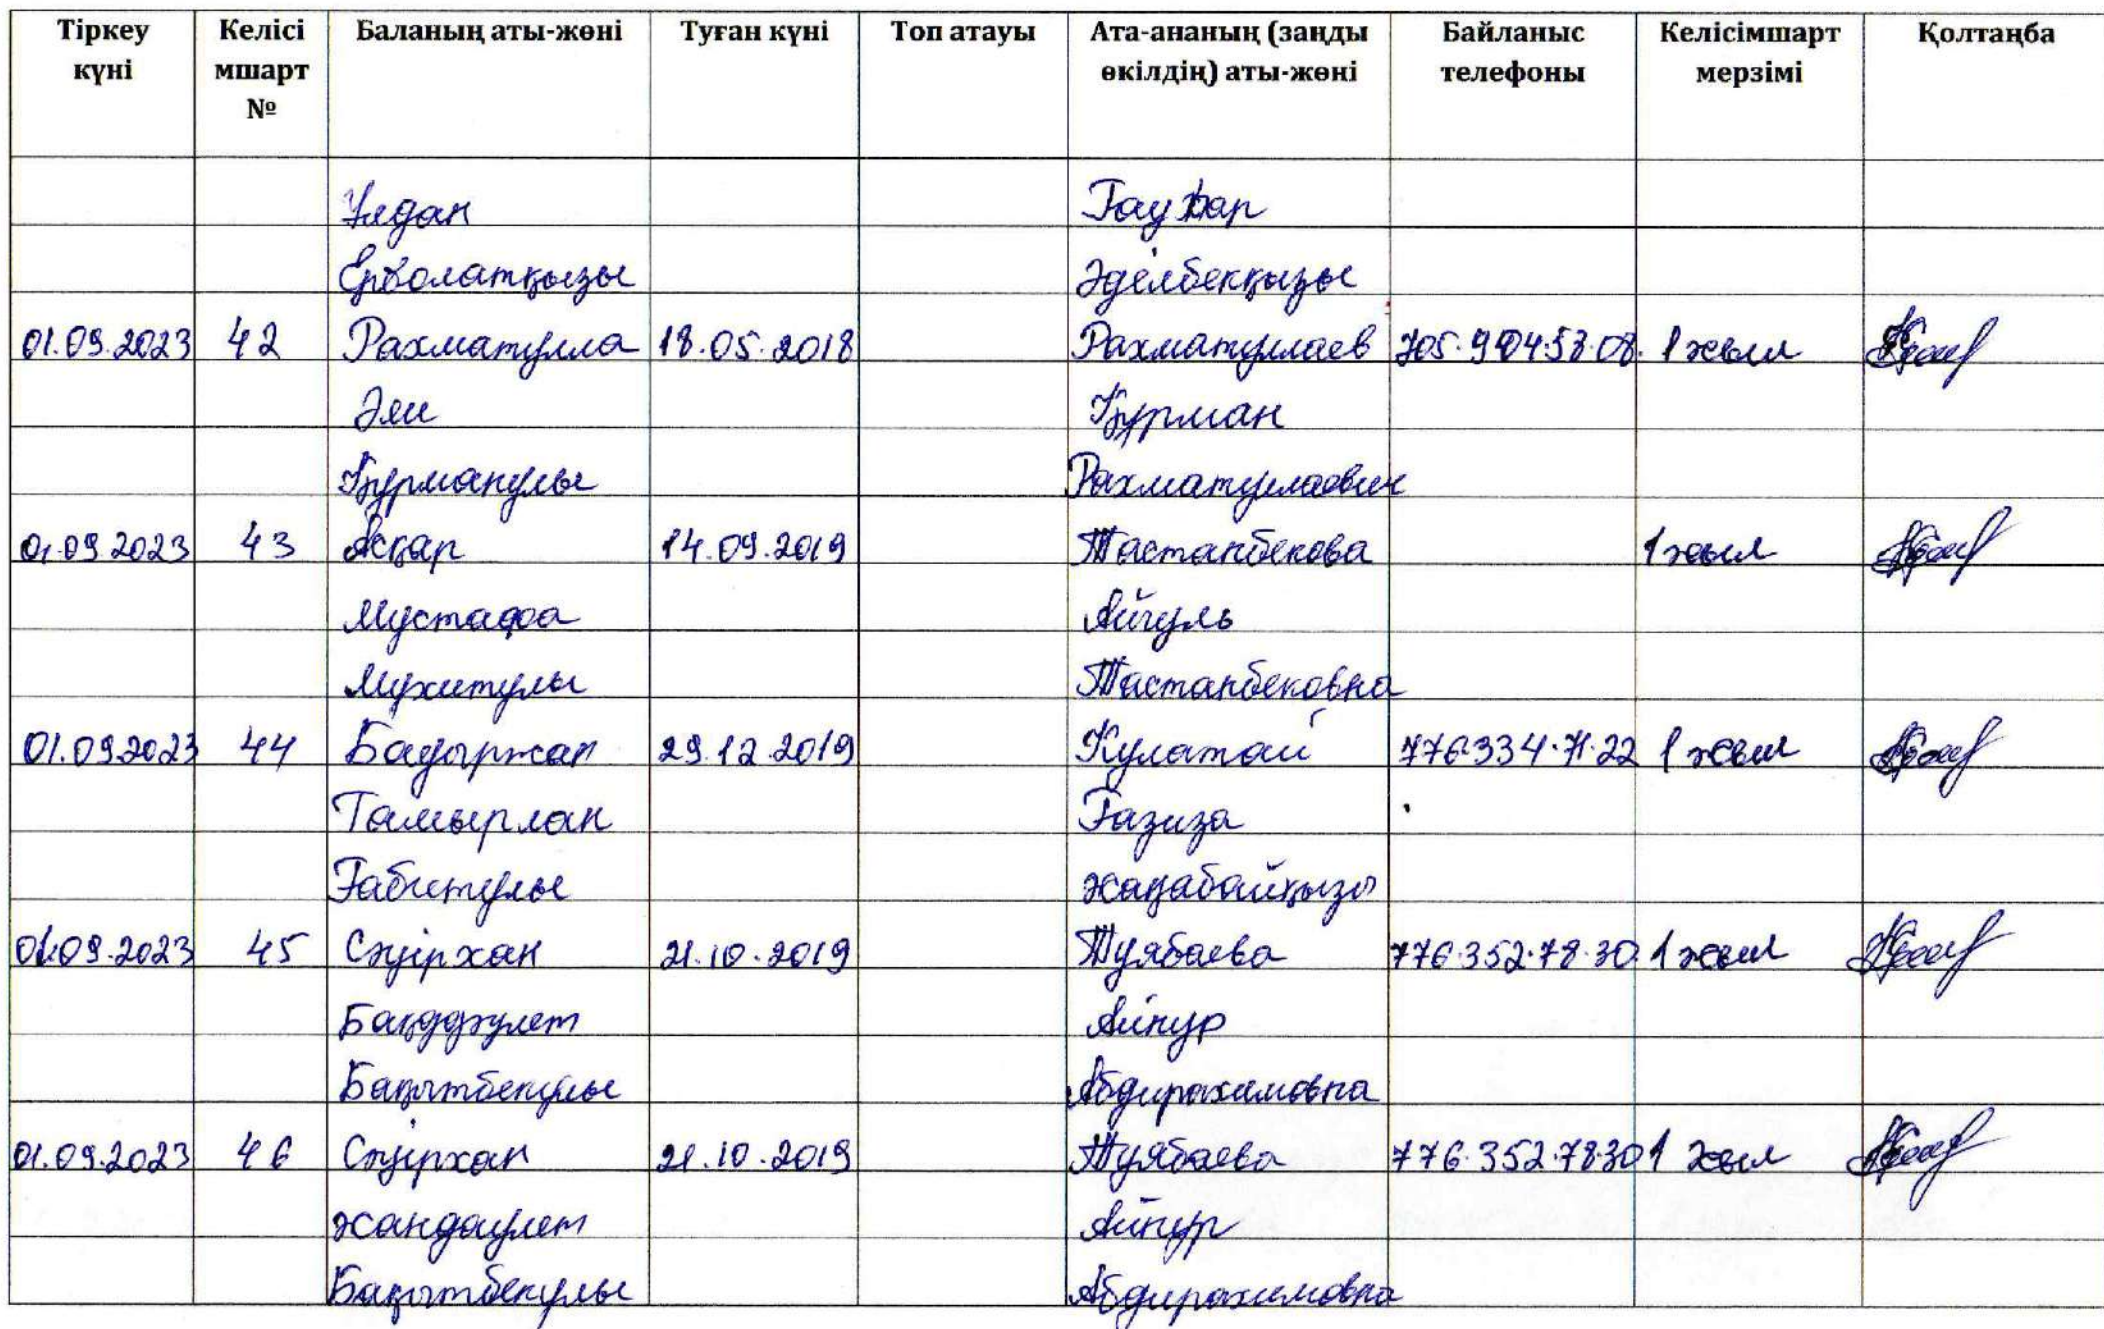 Тіркеу күні Келісі мшарт № Баланың аты-жөні Туған күні Топ атауы Ата-ананың (заңды өкілдің) аты-жөні Байланыс телефоны Келісімшарт мерзімі Қолтаңба
Ұлдан Гауһар
Ерболатқызы Әділбекқызы
01.09.2023 42 Рахматулла 18.05.2018 Рахматуллаев 705.904.53.08. 1 жыл
Әли Құрман
Құрманұлы Рахматуллаевич
01.09.2023 43 Асқар 14.09.2019 Тастанбекова 1 жыл
Мустафа Айгуль
Мухитулы Тастанбековна
01.09.2023 44 Бадыржан 29.12.2019 Кулатай 776.334.71.22 1 жыл
Тамырлан Ғазиза
Ғабитұлы жаңабайқызы
01.09.2023 45 Сәуірхан 21.10.2019 Туябаева 776.352.78.30. 1 жыл
Бақдәулет Айнур
Бақытбекұлы Абдирахимовна
01.09.2023 46 Сәуірхан 21.10.2019 Туябаева 776.352.78.30 1 жыл
жандәулет Айнур
Бақытбекұлы Абдирахимовна